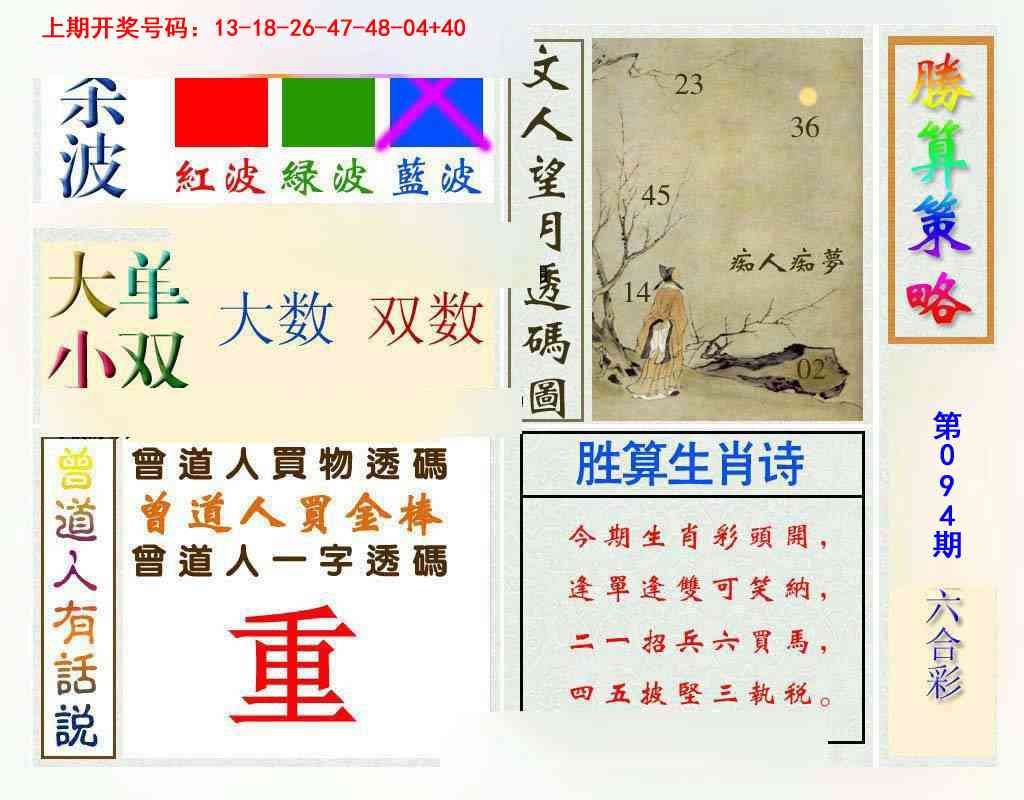 上期开奖号码：13-18-26-47-48-04+40
杀波
紅波 绿波 藍波
大单
小双
大数 双数
文人望月透碼圖
23
36
45
痴人痴夢
14
02
勝算策略
第094期
六合彩
曾道人有話説
曾道人買物透碼
曾道人買金棒
曾道人一字透碼
重
胜算生肖诗
今期生肖彩頭開，
逢單逢雙可笑納，
二一招兵六買馬，
四五披堅三執税。